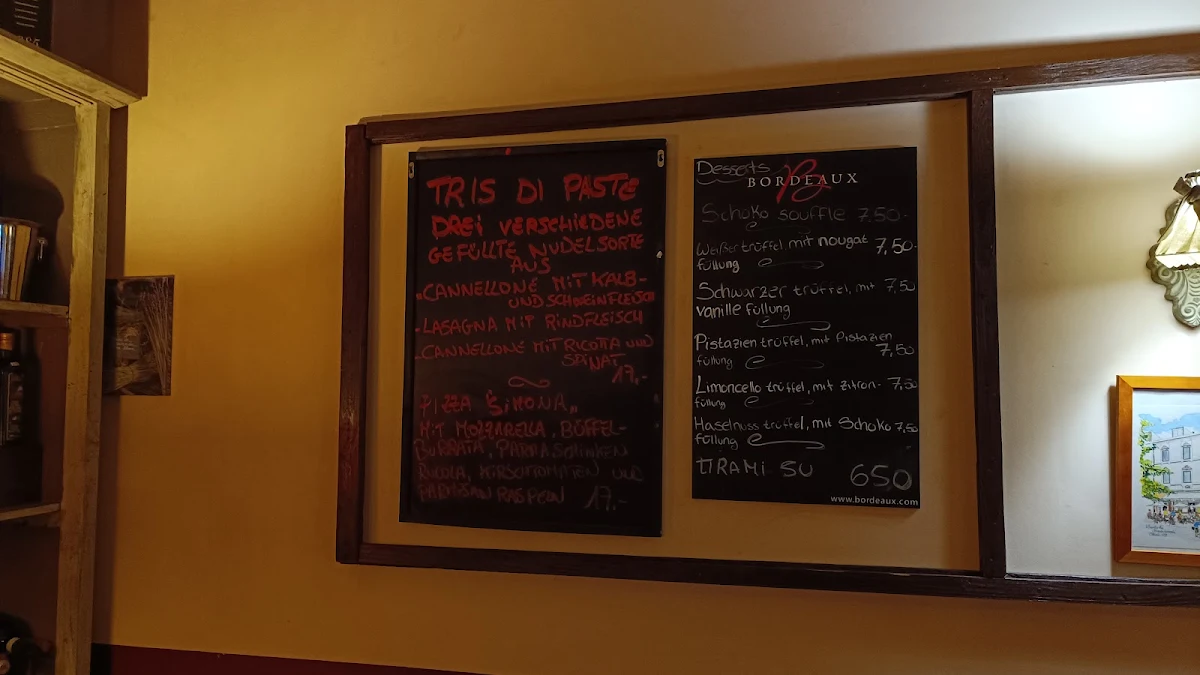 TRIS DI PASTE
DREI VERSCHIEDENE
GEFÜLLTE NUDELSORTE
AUS
-CANNELLONE MIT KALB-
UND SCHWEINFLEISCH
-LASAGNA MIT RINDFLEISCH
-CANNELLONE MIT RICOTTA UND
SPINAT
17,-
PIZZA "SIMONA"
MIT MOZZARELLA, BÜFFEL-
BURRATA, PARMASCHINKEN
RUCOLA, KIRSCHTOMATEN UND
PARMESAN RASPELN 17.-
Desserts
BORDEAUX
Schoko souffle 7,50-
Weißer trüffel mit nougat 7,50-
füllung
Schwarzer trüffel, mit 7,50
vanille füllung
Pistazien trüffel, mit Pistazien
füllung 7,50
Limoncello trüffel, mit Zitron- 7,50
füllung
Haselnuss trüffel, mit Schoko 7,50
füllung
TIRAMI SU 650
www.bordeaux.com